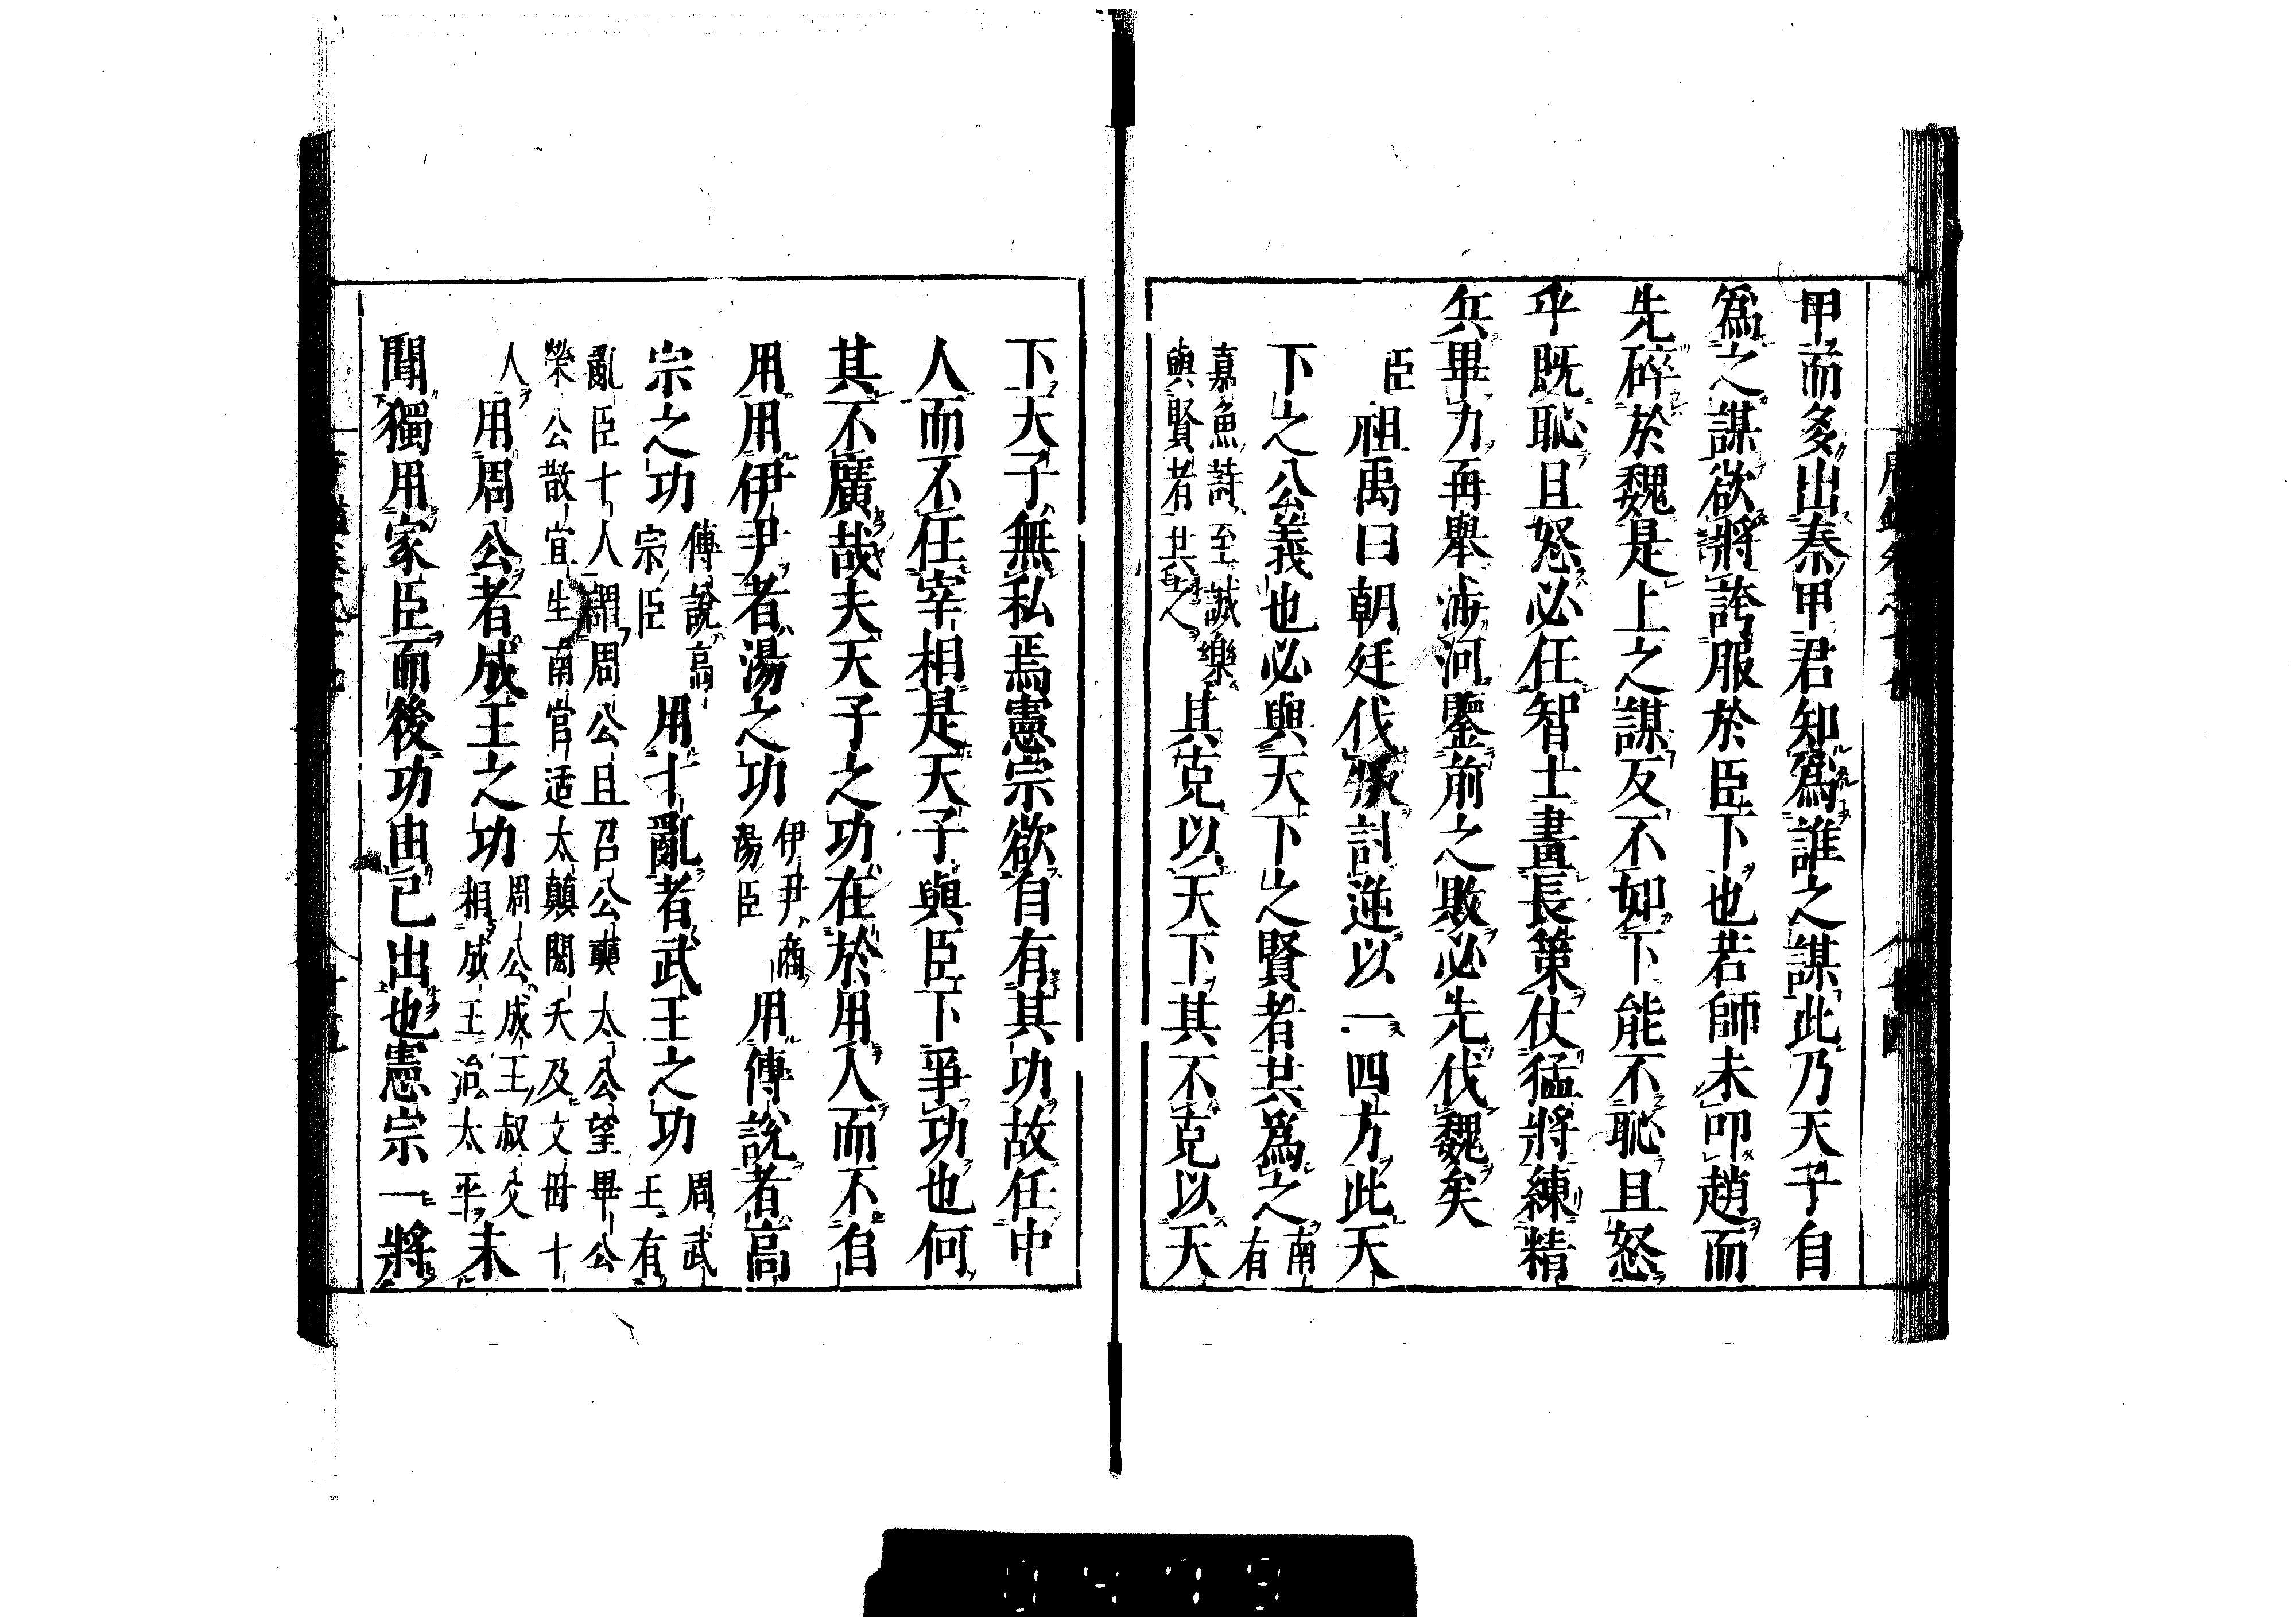 甲而多出秦甲君知爲誰之謀此乃天子自
爲之謀欲將誇服於臣下也若師未叩趙而
先碎於魏是上之謀反不如下能不恥且怒
乎既恥且怒必任智士畫長策仗猛將練精
兵畢力再舉涉河鑒前之敗必先伐魏矣
臣祖禹曰朝廷伐叛討逆以一四方此天
下之公義也必與天下之賢者共爲之南有
嘉魚詩至誠樂
與賢者共之
其克以天下其不克以天
下天子無私焉憲宗欲自有其功故任中
人而不任宰相是天子與臣下爭功也何
其不廣哉夫天子之功在於用人而不自
用用伊尹者湯之功伊尹商湯臣用傅說者高
宗之功傅說高宗臣用十亂者武王之功周武王有
亂臣十人謂周公旦召公奭太公望畢公
榮公散宜生南宮适太顛閎夭及文母十
人用周公者成王之功周公成王叔父相成王治太平未
聞獨用家臣而後功由己出也憲宗一將